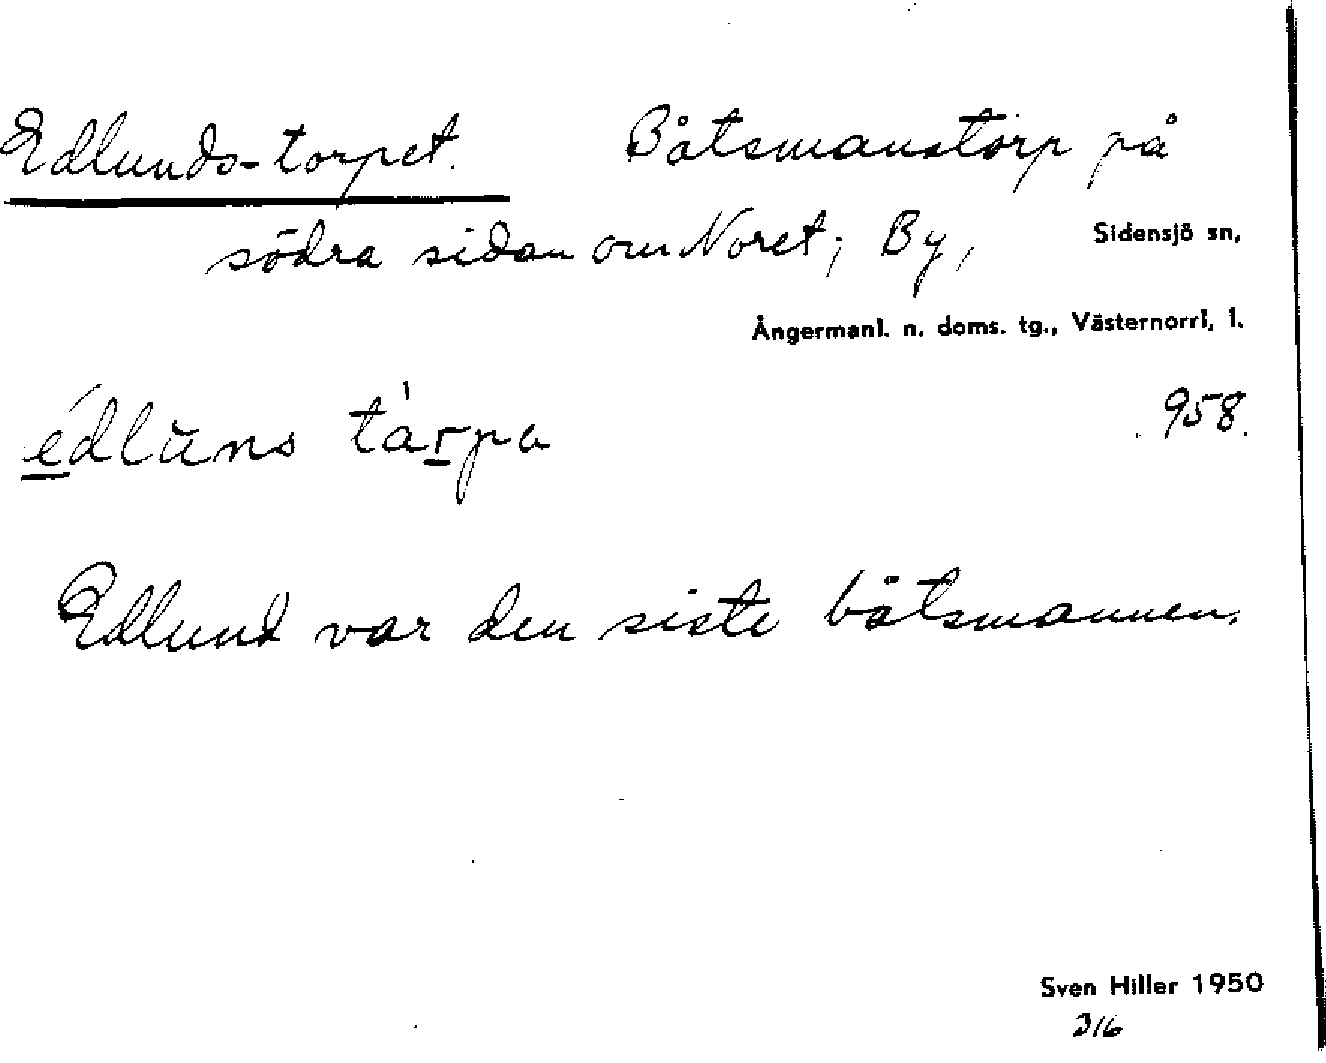 Edlunds-torpet. Båtsmanstorp på
södra sidan om Noret; By, Sidensjö sn,
Ångermanl. n. doms. tg., Västernorrl, l.
édlu̇ns tàrpa 958.
Edlund var den siste båtsmannen.
Sven Hiller 1950
216